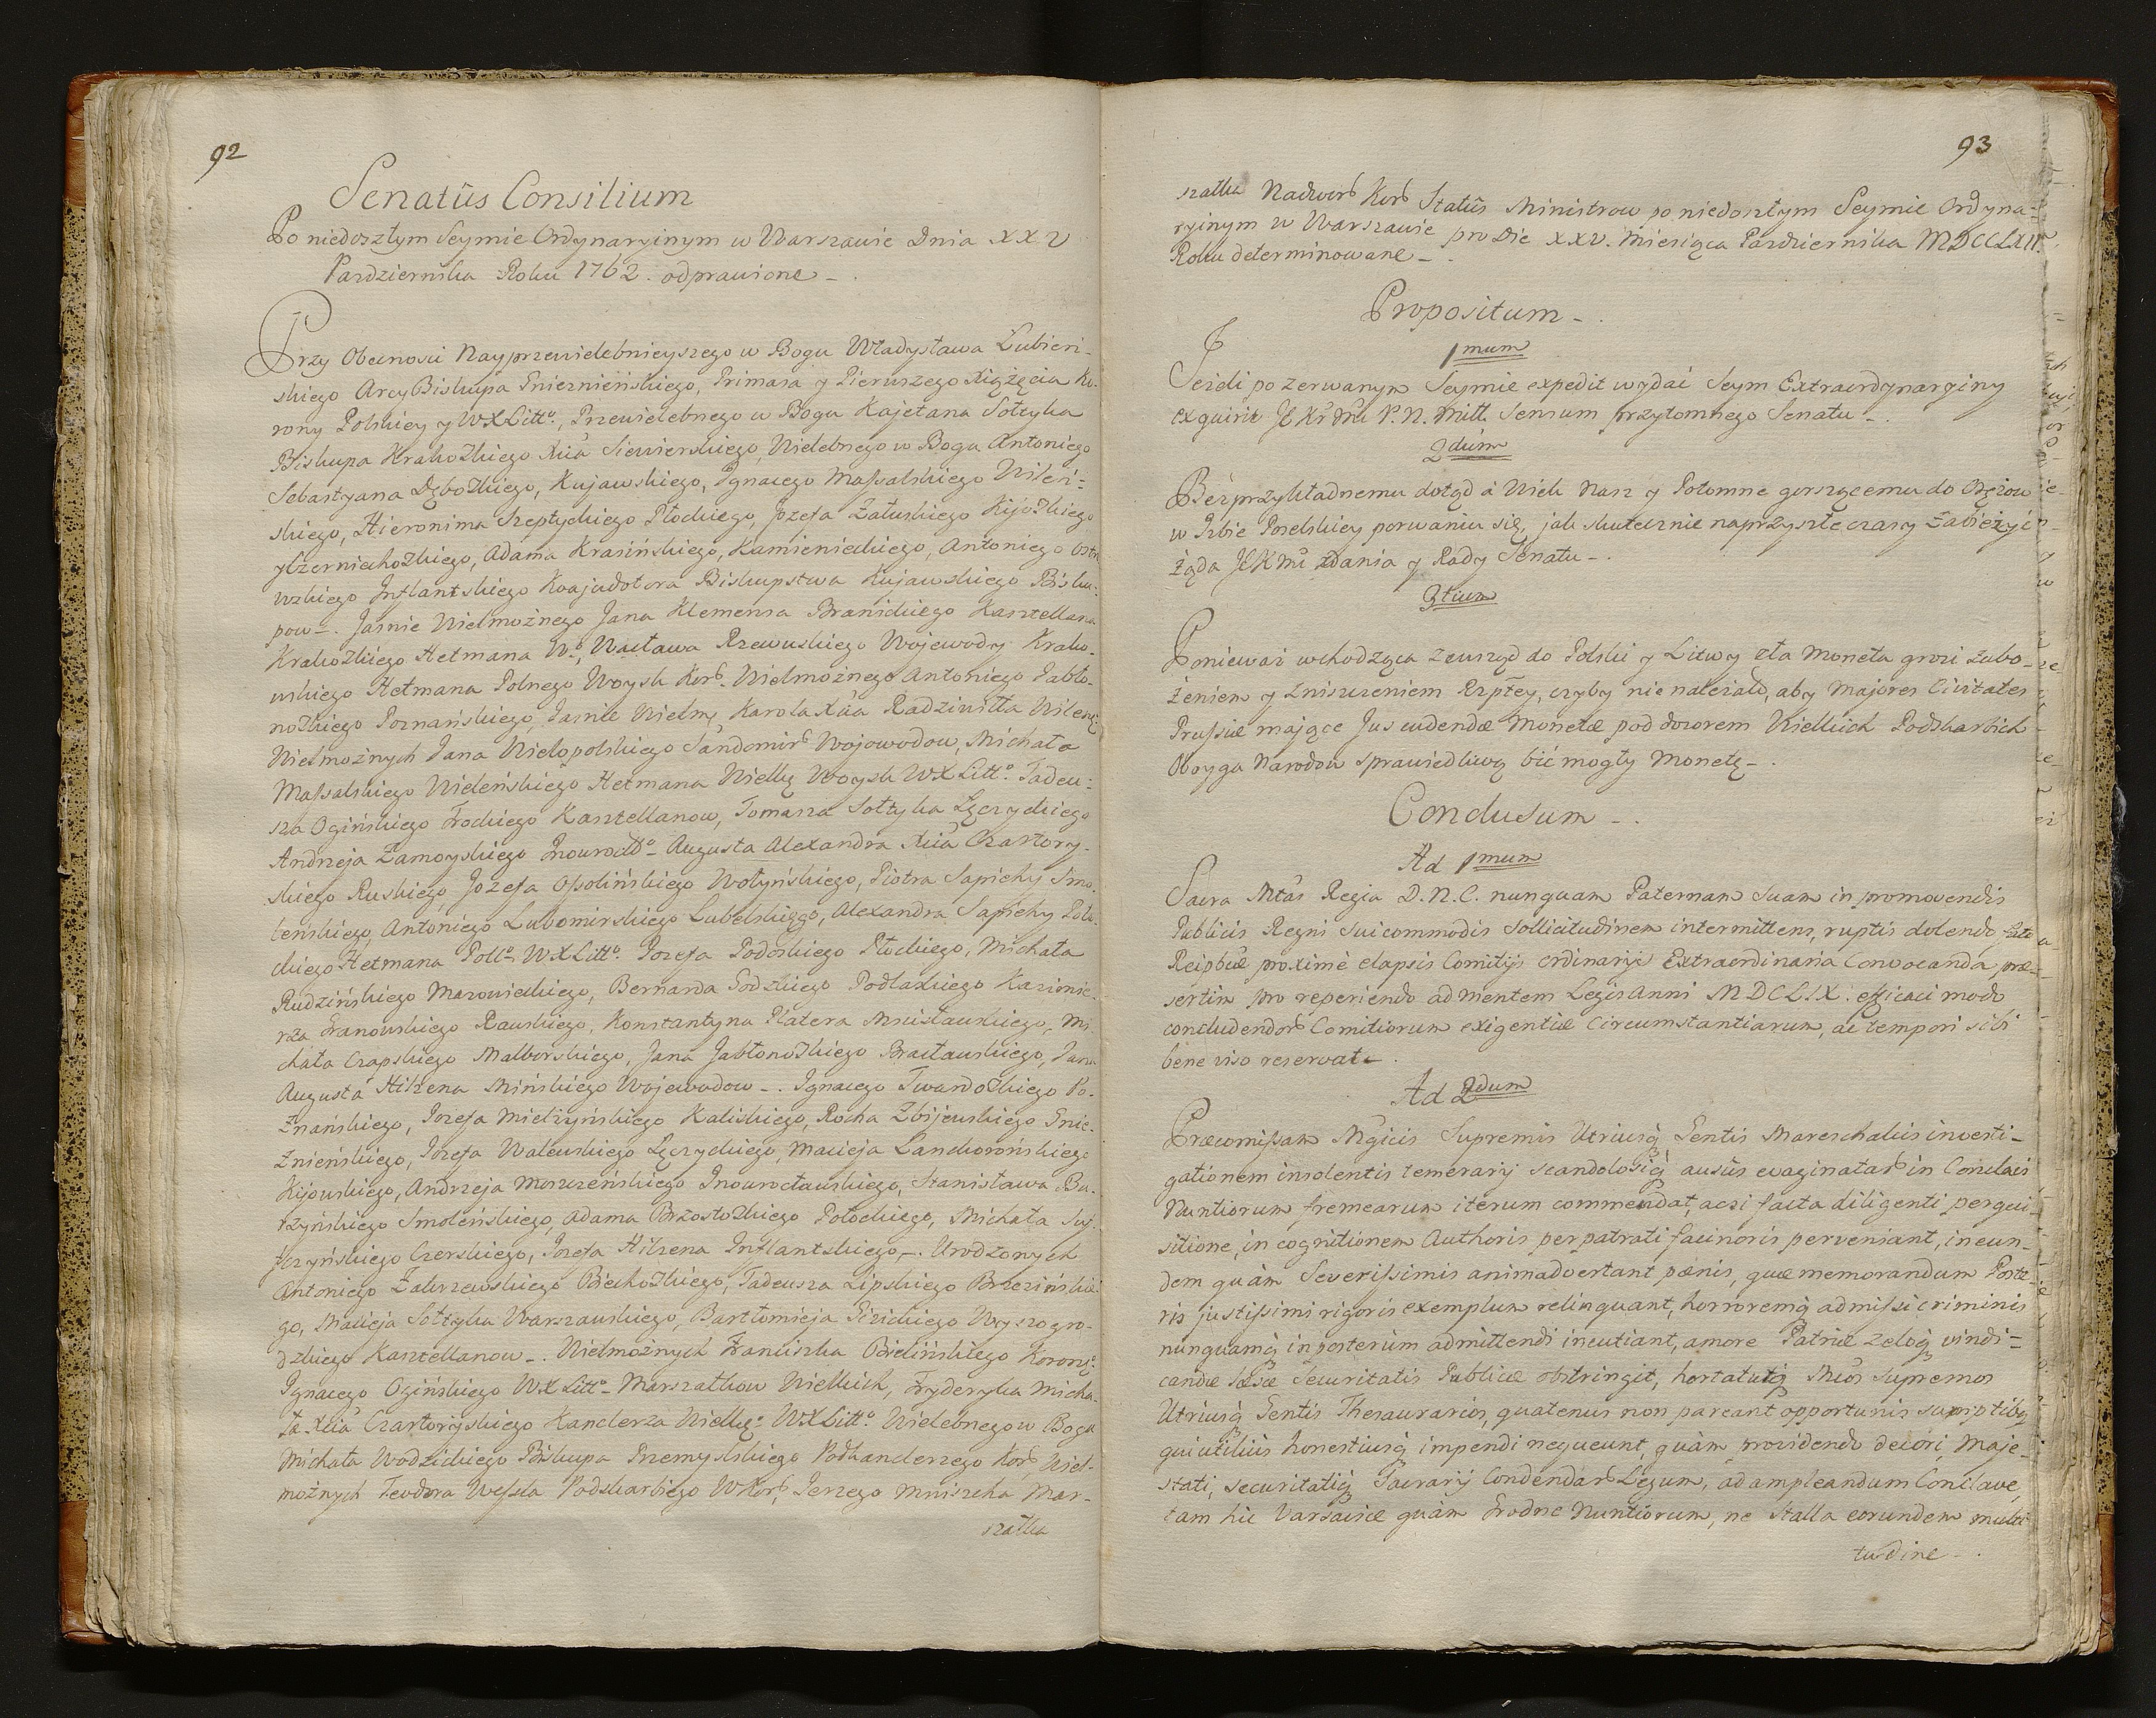 92
Senatûs Consilium
Po niedoszłym Seymie Ordynaryinym w Warszawie Dnia XXV
Pazdziernika Roku 1762. odprawione _ .
Przy Obecnosci Nayprzewielebnieyszego w Bogu Władysława Łubień-
skiego ArcyBiskupa Gnieznieńskiego, Primasa y Pierwszego Xiążęcia Ko-
rony Polskiey y WXLittº., Przewielebnego w Bogu Kajetana Sołtyka
Biskupa Krakoskiego Xcia Siewierskiego, Wielebnego w Bogu Antoniego
Sebastyana Dęboskiego, Kujawskiego, Ignacego Massalskiego Wileń=
skiego, Hieronima Szeptyckiego Płockiego, Jozefa Załuskiego Kijoskiego
y Czerniechoskiego, Adama Krasińskiego, Kamienieckiego, Antoniego Ostro
wskiego Inflantskiego Koajudotora Biskupstwa Kujawskiego Bisku-
pow _ . Jasnie Wielmożnego Jana Klemensa Branickiego Kasztellana
Krakoskiego Hetmana Wº., Wacława Rzewuskiego Wojewody Krako-
wskiego Hetmana Polnego Woysk Kor. Wielmożnego Antoniego Jabło-
noskiego Poznańskiego, Jasnie Wielmº Karola Xcia Radziwiłła Wileń.
Wielmożnych Jana Wielopolskiego Sandomir Wojewodow, Michała
Massalskiego Wileńskiego Hetmana Wielkº Woysk WXLittº. Tadeu=
sza Ogińskiego Trockiego Kasztellanow, Tomasza Sołtyka Łęczyckiego
Andrzeja Zamoyskiego Inowrocłº _ Augusta Alexandra Xcia Czartory-
skiego Ruskiego, Jozefa Ossolińskiego Wołyńskiego, Piotra Sapiehy Smo-
leńskiego, Antoniego Lubomirskiego Lubelskiego, Alexandra Sapiehy Poło-
ckiego Hetmana Polº WXLittº. Jozefa Podoskiego Płockiego, Michała
Rudzińskiego Mazowieckiego, Bernarda Godzkiego Podlaskiego Kazimie-
rza Granowskiego Rawskiego, Konstantyna Platera Mscisławskiego, Mi-
chała Czapskiego Malborskiego, Jana Jabłonoskiego Bracławskiego, Jana
Augusta Hilzena Mińskiego Wojewodow _ . Ignacego Twardoskiego Po-
znańskiego, Jozefa Mielżyńskiego Kaliskiego, Rocha Zbijewskiego Gnie-
znieńskiego, Jozefa Walewskiego Łęczyckiego, Macieja Lanckorońskiego
Kijowskiego, Andrzeja Moszczeńskiego Inowrocławskiego, Stanisława Bu-
rzyńskiego Smoleńskiego, Adama Brzostoskiego Połockiego, Michała Suf-
fczyńskiego Czerskiego, Jozefa Hilzena Inflantskiego, _ . Urodzonych
Antoniego Zakrzewskiego Biechoskiego, Tadeusza Lipskiego Brzezińskie-
go, Macieja Sołtyka Warszawskiego, Bartłomieja Giżickiego Wyszogro-
dzkiego Kasztellanow _ . Wielmożnych Franciszka Bielińskiego Koronº.
Ignacego Ogińskiego WXLittº _ Marszałkow Wielkich, Fryderyka Micha-
ła Xcia Czartoryskiego Kanclerza Wielkº WXLittº. Wielebnego w Bogu
Michała Wodzickiego Biskupa Przemyslskiego Podkanclerzego Kor, Wiel-
możnych Teodora Wessla Podskarbiego WKor, Jerzego Mniszcha Mar-
szałka
93
szałka Nadwor Kor Statûs Ministrow po niedoszłym Seymie Ordyna-
ryinym w Warszawie pro Die XXV. Miesiąca Pazdziernika MDCCLXII.
Roku determinowane _ .
Propositum _ .
1mum
Jeżeli po zerwanym Seymie expedit wydać Seym Extraordynaryiny
exquirit JKMć P.N. Mitt Sensum przytomnego Senatu _ .
2dum
Bezprzykładnemu dotąd á Wiek Nasz y Potomne gorszącemu do Orężow
w Izbie Poselskiey porwaniu się, jak skutecznie na przyszłe czasy zabieżyć
żąda JKMć zdania y Rady Senatu _ .
3tium
Ponieważ wchodząca zewsząd do Polski y Litwy zła Moneta grozi zubo-
żeniem y zniszczeniem Rzpltey, czyby nie należało, aby Majores Civitates
Prussiæ mające Jus cudendæ Monetæ pod dozorem Wielkich Podskarbich
Oboyga Narodow sprawiedliwą bić mogły Monetę _ .
Conclusum _ .
Ad 1mum
Sacra Mtas Regia D.N.C. nunquam Paternam Suam in promovendis
Publicis Regni Sui commodis Sollicitudinem intermittens, ruptis dolendo fato
Reipbcæ proximè elapsis Comitijs ordinarijs Extraordinaria Convocanda præ-
sertim pro reperiendo ad mentem Legis Anni MDCLIX. efficaci modo
concludendor Comitiorum exigentiæ Circumstantiarum, ac tempori sibi
bene viso reservat _ .
Ad 2dum
Præcomissam Mgicis Supremis Utriusq Gentis Mareschalcis investi-
gationem insolentis temerarij scandolosiq ausûs evaginatar in Conclavi
Nuntiorum framearum iterum commendat, acsi facta diligenti perqui-
sitione, in cognitionem Authoris perpatrati facinoris perveniant, in eun-
dem quàm Severissimis animadvertant pænis, quæ memorandum Poste-
ris justissimi rigoris exemplum relinquant, horroremq admissi criminis
nunquamq in posterum admittendi incutiant, amore Patriæ zeloq vindi-
candæ læsæ Securitatis Publicæ obstringit, hortaturq Mcos Supremos
Utriusq Gentis Thesaurarios, quatenus non parcant opportunis sumptibq
qui utiliùs honestiusq impendi nequeunt, quàm providendo decori, Maje-
stati, securitatiq Sacrarij Condendar Legum, ad ampleandum Conclave,
tam hic Varsaviæ quàm Grodnæ Nuntiorum, ne Stalla eorundem multi
tudine _ .